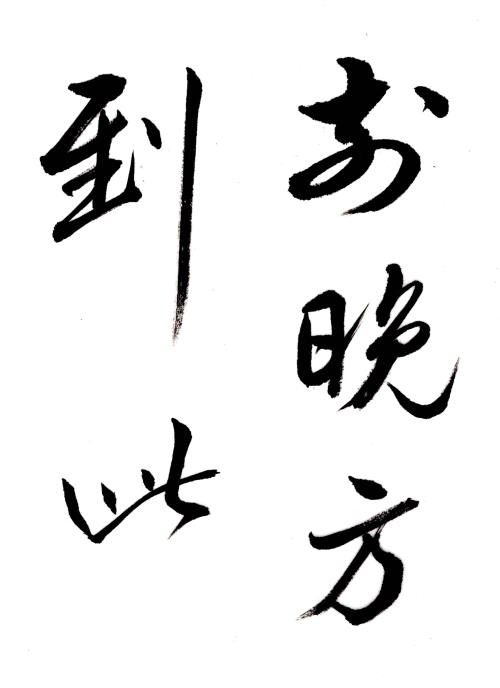 前晚方
到此